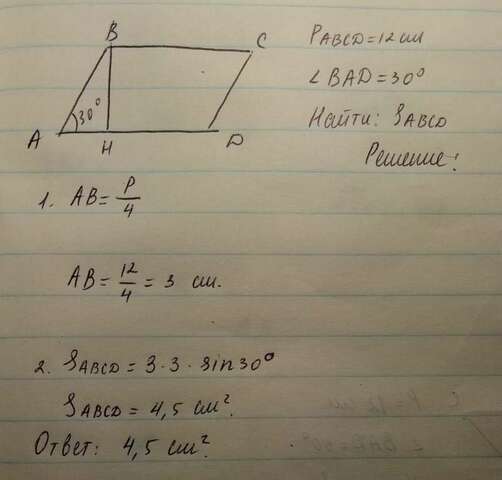 B
C
30°
A
H
D
P ABCD = 12 см
∠BAD = 30°
Найти: S ABCD
Решение:
1. AB = P/4
AB = 12/4 = 3 см.
2. S ABCD = 3 · 3 · sin 30°
S ABCD = 4,5 см².
Ответ: 4,5 см².